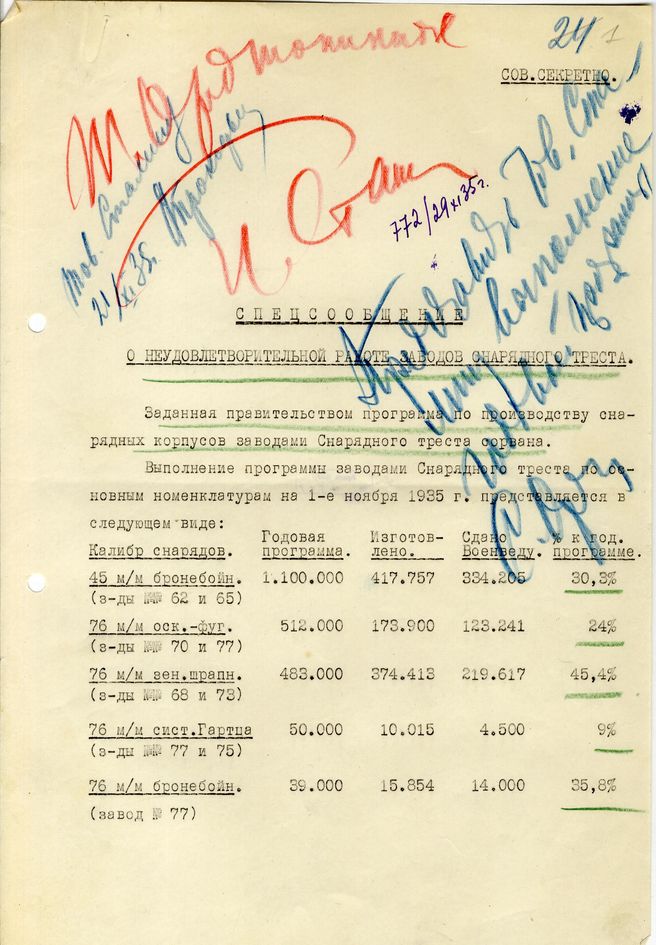 24 1
СОВ.СЕКРЕТНО.
Т. Орджоникидзе
И. Стал
тов. Сталину
21/XI 35г.
772/29 XI 35г.
Тов. Ста-
выполнение
СПЕЦСООБЩЕНИЕ
О НЕУДОВЛЕТВОРИТЕЛЬНОЙ РАБОТЕ ЗАВОДОВ СНАРЯДНОГО ТРЕСТА.
Заданная правительством программа по производству сна-
рядных корпусов заводами Снарядного треста сорвана.
Выполнение программы заводами Снарядного треста по ос-
новным номенклатурам на 1-е ноября 1935 г. представляется в
следующем виде:
Калибр снарядов. Годовая программа. Изготов-лено. Сдано Военведу. % к год. программе.
45 м/м бронебойн. 1.100.000 417.757 334.205 30,3%
(з-ды №№ 62 и 65)
76 м/м оск.-фуг. 512.000 173.900 123.241 24%
(з-ды №№ 70 и 77)
76 м/м зен.шрапн. 483.000 374.413 219.617 45,4%
(з-ды №№ 68 и 73)
76 м/м сист.Гартца 50.000 10.015 4.500 9%
(з-ды №№ 77 и 75)
76 м/м бронебойн. 39.000 15.854 14.000 35,8%
(завод № 77)